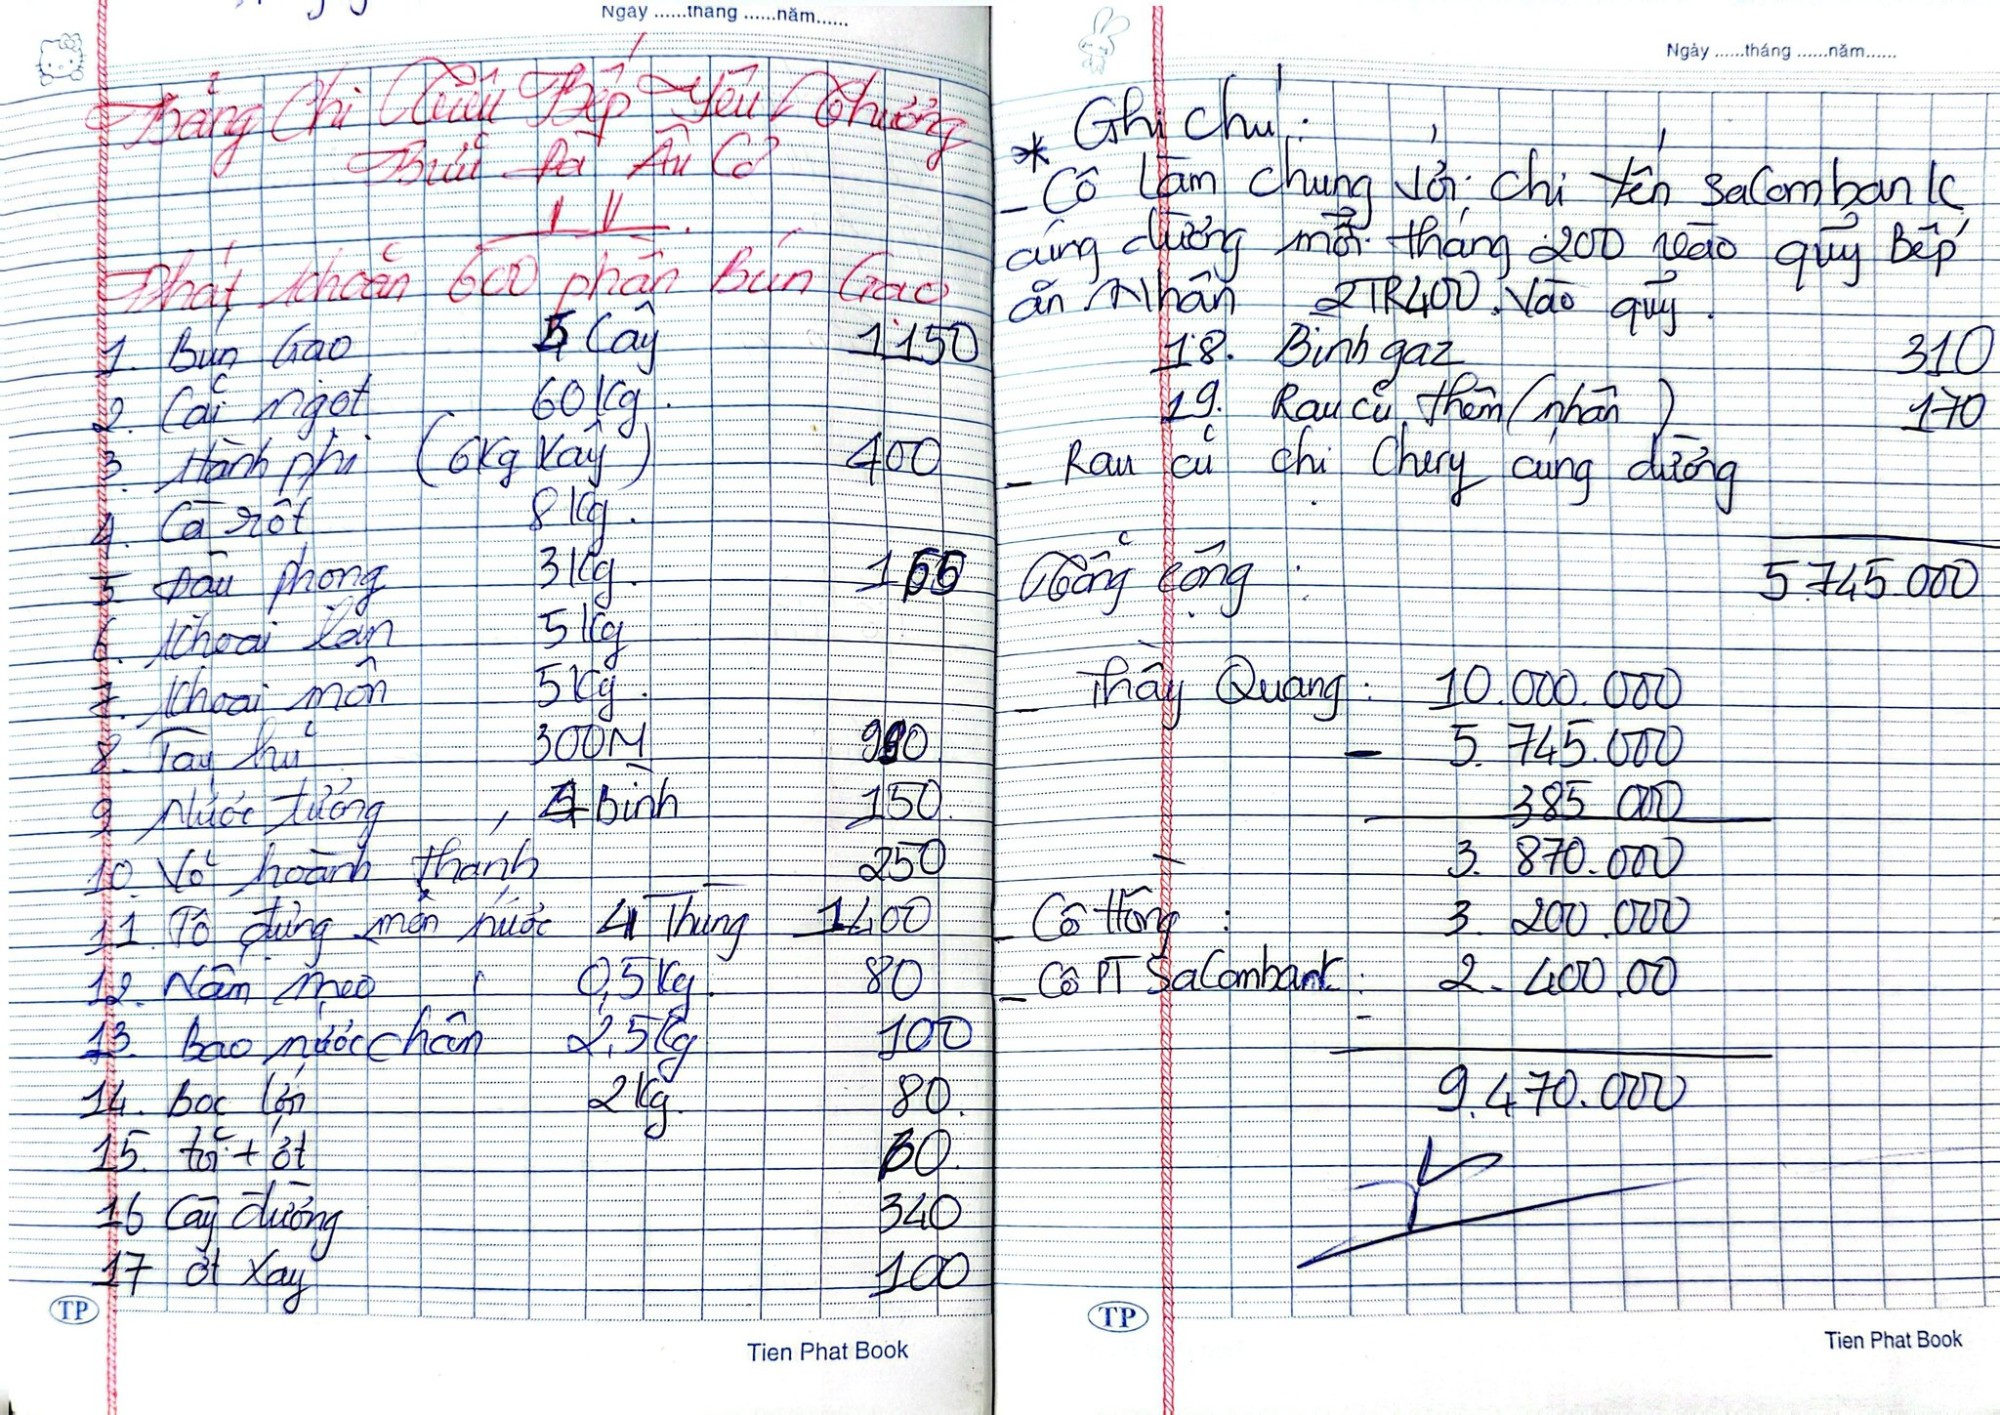 Ngày ......tháng ......năm......
Bảng Chi Tiêu Bếp Yêu Thương
Bưu Đà Ấu Cơ
Phát khoản 600 phần Bún Gạo
1. Bún Gạo 5 Cây 1.150
2. Cải ngọt 60Kg.
3. Hành phi (6Kg Xấy) 400
4. Cà rốt 8Kg.
5 Đậu phọng 3Kg.
6. Khoai lan 5Kg
7. Khoai môn 5Kg.
8. Tàu hủ 300M
9 Nước tương 4 Bình 150.
10. Vỏ hoành thanh 250
11. Tô đựng món nước 4 Thùng 1400
12. Nấm mèo 0,5Kg. 80
13. Bao nước chấn 2,5Kg 100
14. Bọc lớn 2Kg. 80.
15. tỏi + ớt
16 Cây đường 340
17 ớt xay 100
TP
Tien Phat Book
Ngày ......tháng ......năm......
* Ghi chú:
- Cô làm chung với chị Yến SaCombank
cúng dường mỗi tháng 200 vào quỹ Bếp
ăn Nhân 2TR400. Vào quỹ.
18. Bình gaz 310
19. Rau củ thêm (nhân) 170
- Rau củ chị Chery cúng dường
Tổng cộng: 5.745.000
- Thầy Quang: 10.000.000
- 5.745.000
385 000
3.870.000
- Cô Hồng: 3.200.000
- Cô PT SaCombank: 2.400.00
9.470.000
TP
Tien Phat Book